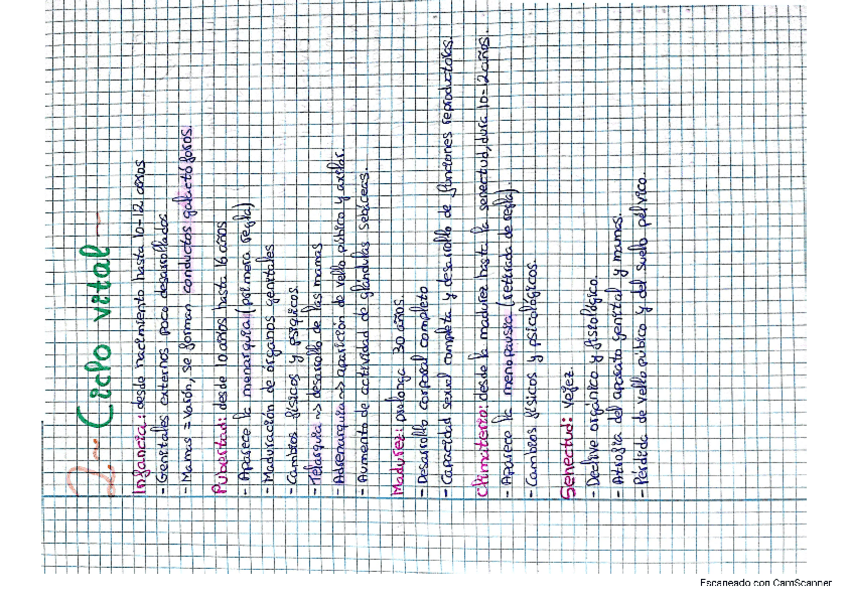 2.- Ciclo vital -
Infancia: desde nacimiento hasta 10-12 años
- Genitales externos poco desarrollados.
- Mamas = varón, se forman conductos galactóforos.
Pubertad: desde 10 años hasta 16 años
- Aparece la menarquia (primera regla)
- Maduración de órganos genitales
- Cambios físicos y psíquicos.
- Telarquia ~> desarrollo de las mamas
- Adrenarquia ~> aparición de vello púbico y axilar.
- Aumento de actividad de glándulas sebáceas.
Madurez: prolonga 30 años.
- Desarrollo corporal completo
- Capacidad sexual completa y desarrollo de funciones reproductoras.
Climaterio: desde la madurez hasta la senectud, dura 10-12 años.
- Aparece la menopausia (retirada de regla).
- Cambios físicos y psicológicos.
Senectud: Vejez.
- Declive orgánico y fisiológico.
- Atrofia del aparato genital y mamas.
- Pérdida de vello púbico y del suelo pélvico.
Escaneado con CamScanner